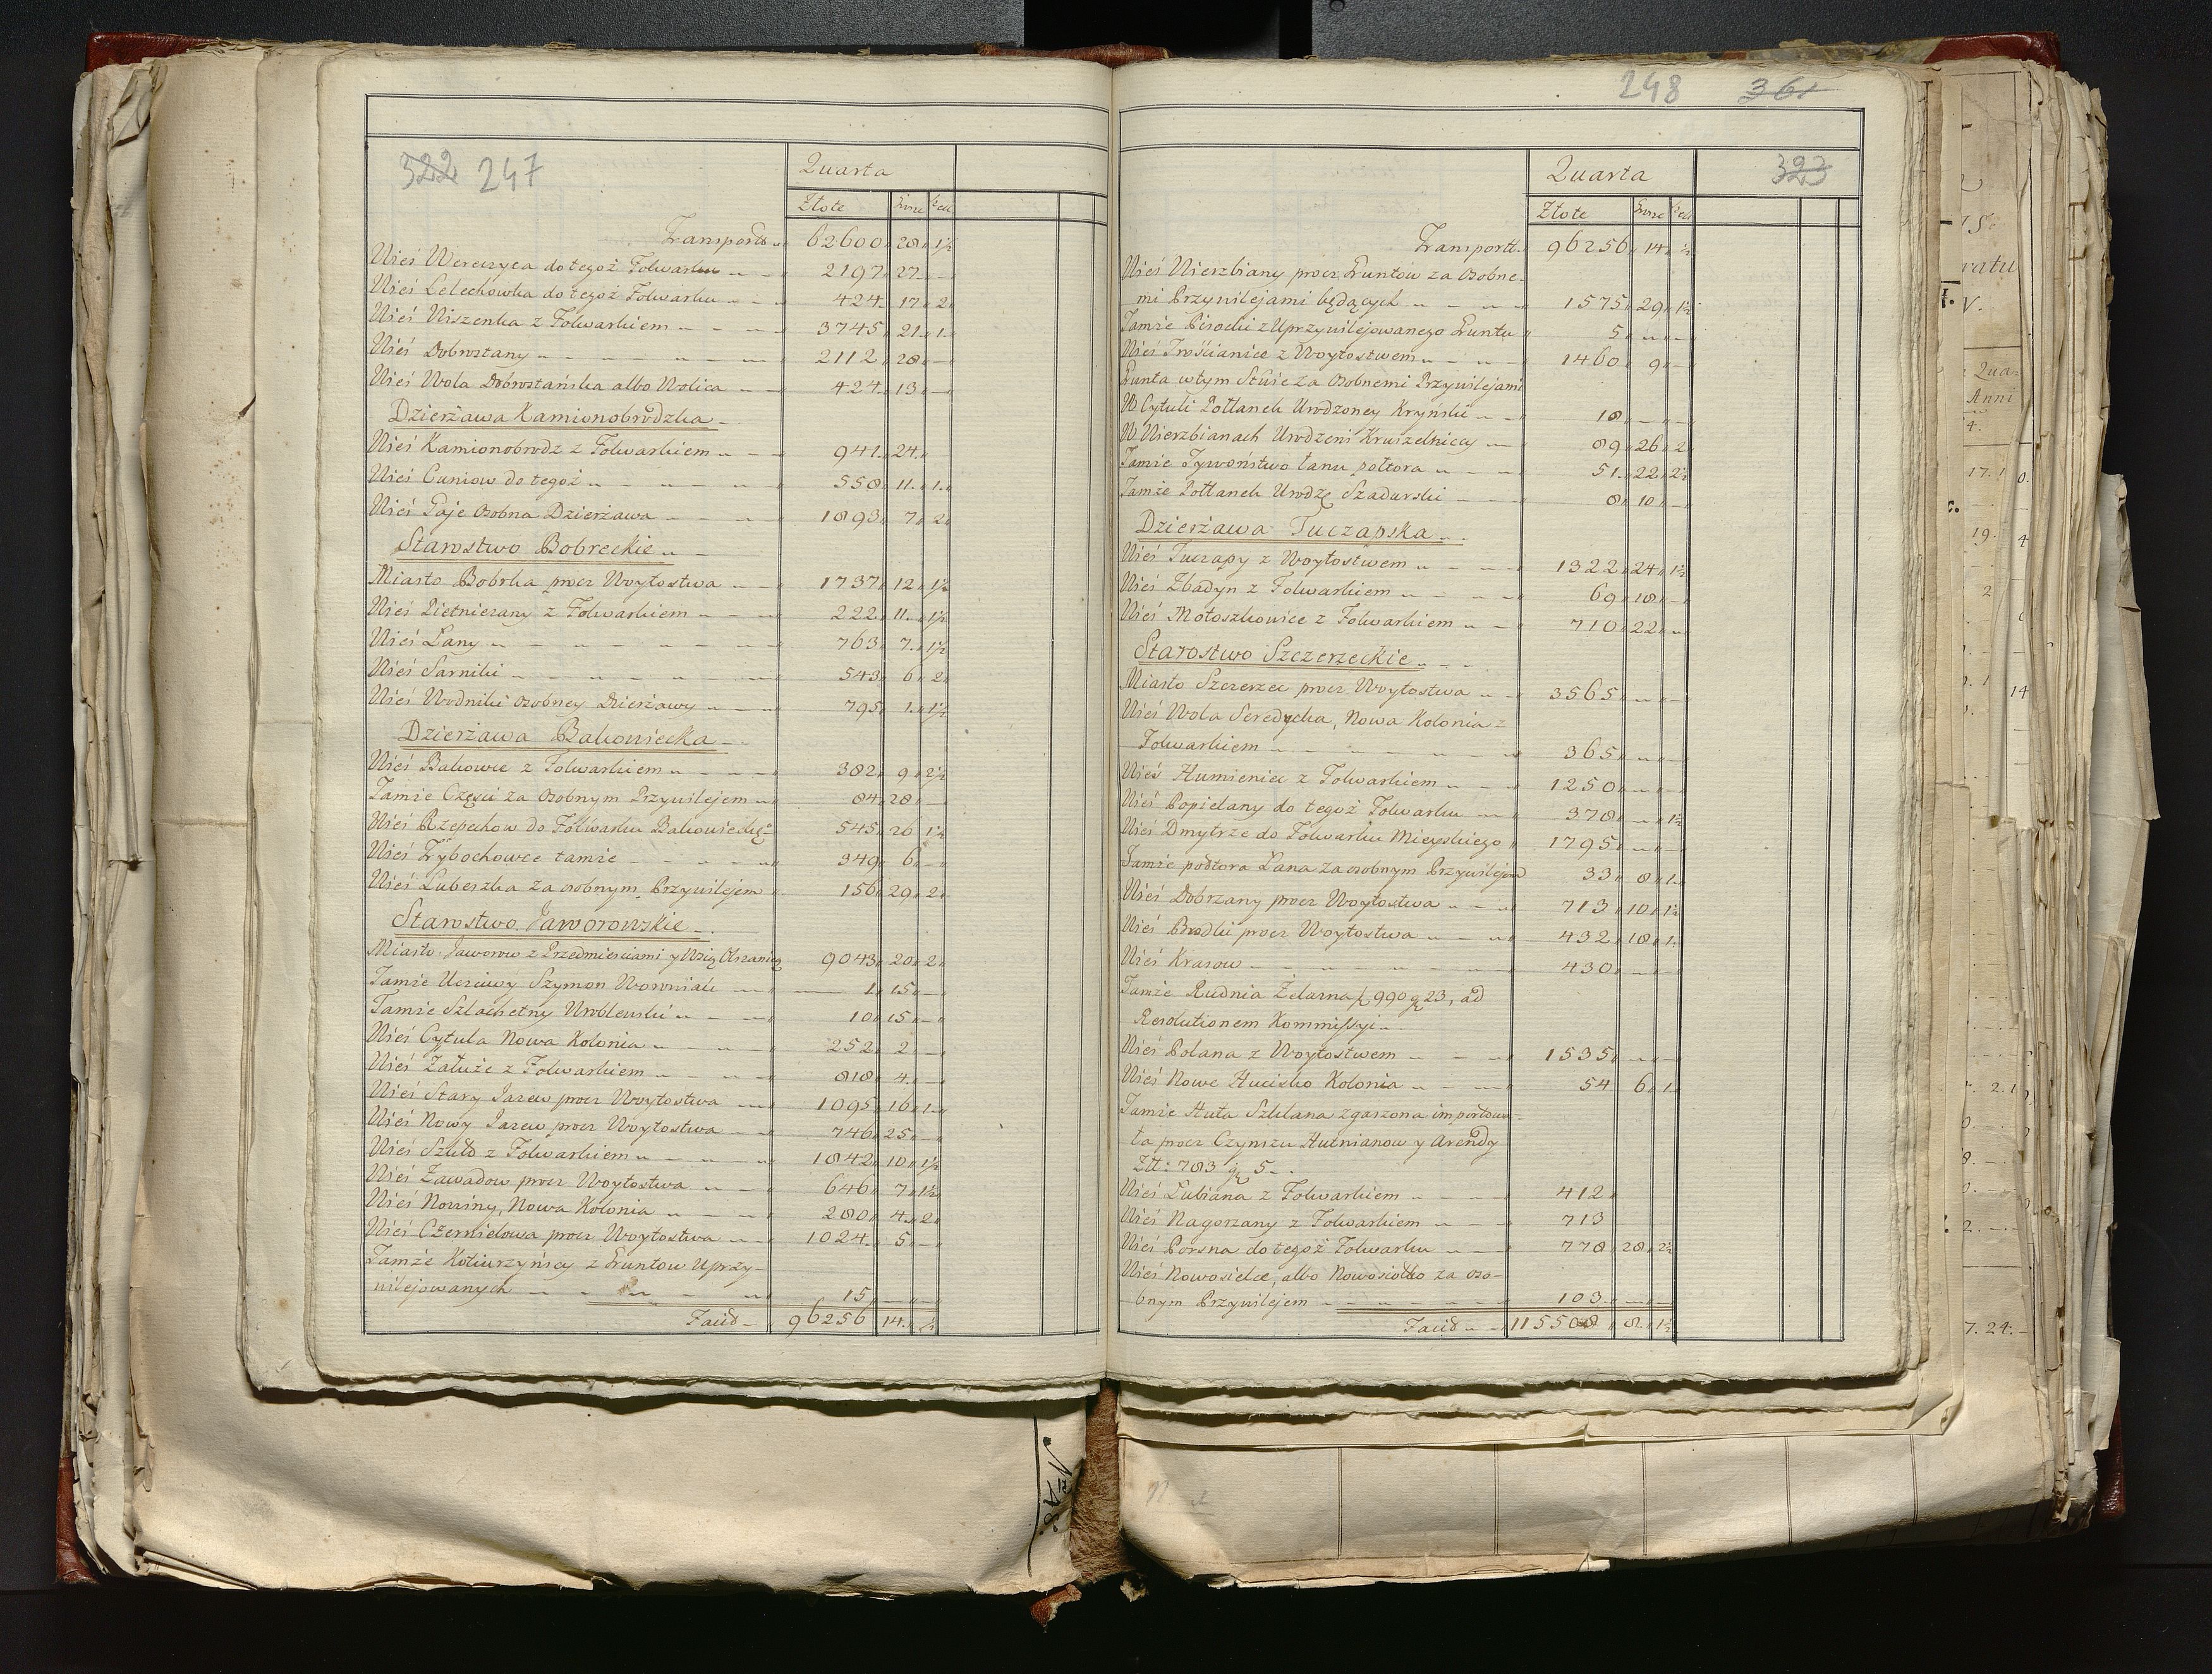 322 247
Quarta
Złote Grosze Fen
Transportt 62600 28 1½
Wieś Wereszyca do tegoż Folwarku 2197 27 —
Wieś Lelechówka do tegoż Folwarku 424 17 2
Wieś Wiszenka z Folwarkiem 3745 21 1
Wieś Dobrostany 2112 28 —
Wieś Wola Dobrostańska albo Wolica 424 13 —
Dzierżawa Kamionobrodzka
Wieś Kamionobrodz z Folwarkiem 941 24
Wieś Cuniow do tegoż 558 11 1
Wieś Paje Osobna Dzierżawa 1893 7 2
Starostwo Bobreckie
Miasto Bobrka procz Woytostwa 1737 12 1½
Wieś Pietniczany z Folwarkiem 222 11 1½
Wieś Łany 763 7 1½
Wieś Sarniki 543 6 2
Wieś Wodniki osobney Dzierżawy 795 1 1½
Dzierżawa Bakowiecka
Wieś Bakowce z Folwarkiem 382 9 2½
Tamże Części za Osobnym Przywilejem 84 28 —
Wieś Rzepechow do Folwarku Bakowieckgo 545 26 1½
Wieś Trybochowce tamże 349 6 —
Wieś Lubeszka za osobnym Przywilejem 156 29 2
Starostwo Jaworowskie
Miasto Jaworow z Przedmieściami y Wsią Olszanicą 9043 20 2
Tamże Uczciwy Szymon Wowniak 1 15 —
Tamże Szlachetny Wroblewski 10 15 —
Wieś Cytula Nowa Kolonia 252 2 —
Wieś Załuże z Folwarkiem 818 4 —
Wieś Stary Jazew procz Woytostwa 1095 16 1
Wieś Nowy Jazew procz Woytostwa 746 25 —
Wieś Szkło z Folwarkiem 1842 10 1½
Wieś Zawadow procz Woytostwa 646 7 1½
Wieś Nowiny, Nowa Kolonia 280 4 2
Wieś Czernielowa procz Woytostwa 1024 5 —
Tamże Kotiurzyńscy z Gruntow Uprzy-
wilejowanych 15 — —
Facid 96256 14 ½
248 361
323
Quarta
Złote Grosze Fen
Transportt 96256 14 ½
Wieś Wierzbiany procz Gruntow za Osobne-
mi Przywilejami będących 1575 29 1½
Tamże Pisocki z Uprzywilejowanego Gruntu 5 — —
Wieś Trościaniec z Woytostwem 1460 9 —
Grunta w tym Stswie za Osobnemi Przywilejami
W Cytuli Połłanek Urodzoney Kryński 18 — —
W Wierzbianach Urodzeni Kruszelnicy 89 26 2
Tamże Tywoństwo łanu połtora 51 22 2½
Tamże Połłanek Urodzę Szadurski 8 10 —
Dzierżawa Tuczapska
Wieś Tuczapy z Woytostwem 1322 24 1½
Wieś Zbadyn z Folwarkiem 69 18 —
Wieś Mołoszkowice z Folwarkiem 710 22 —
Starostwo Szczerzeckie
Miasto Szczerzec procz Woytostwa 3565 — —
Wieś Wola Seredycka, Nowa Kolonia z
Folwarkiem 365 — —
Wieś Humieniec z Folwarkiem 1250 — —
Wieś Popielany do tegoż Folwarku 378 — 1½
Wieś Dmytrze do Folwarku Mieyskiego 1795 — —
Tamże półtora Łana za osobnym Przywilejem 33 8 1
Wieś Dobrzany procz Woytostwa 713 10 1½
Wieś Brodki procz Woytostwa 432 18 1
Wieś Krasow 430 — —
Tamże Rudnia Żelazna f. 990 g 23, ad
Resolutionem Kommissyi
Wieś Polana z Woytostwem 1535 — —
Wieś Nowe Hucisko Kolonia 54 6 1
Tamże Huta Szklana zgaszona importowa-
ła procz Czynszu Hutnianow y Arendy
Złł: 783 g 5 —
Wieś Lubiana z Folwarkiem 412
Wieś Nagorzany z Folwarkiem 713
Wieś Porsna do tegoż Folwarku 778 28 2½
Wieś Nowosielce, albo Nowosiołko za oso-
bnym Przywilejem 103 — —
Facid 115508 8 1½